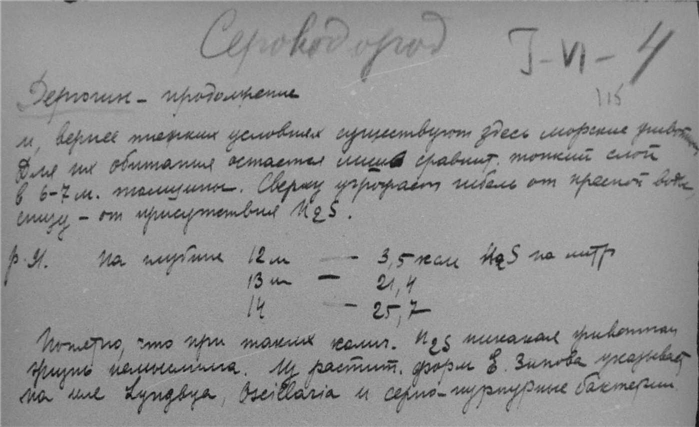 Сероводород
I-VI-4
115
Дерюгин - продолжение
и, вернее тяжких условиях существуют здесь морские живот
Для их обитания остается лишь сравнит. тонкий слой
в 6-7 м. толщины. Сверху угрожает гибель от пресной воды,
снизу - от присутствия H2S.
На глубине 12 м — 3,5 ксм H2S на литр
13 м — 21,4
14 — 25,7
Понятно, что при таких колич. H2S никакая животная
жизнь немыслима. Из растит. форм Е. Зинова указывает
на иле Lyngbya, Oscillaria и серно-пурпурные бактерии.